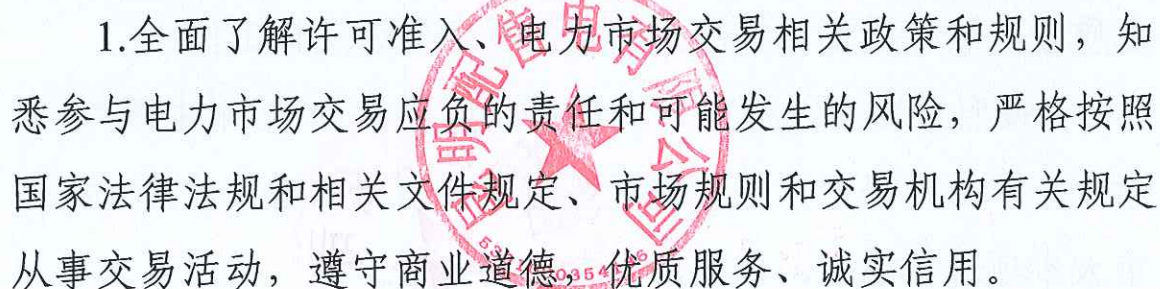 1.全面了解许可准入、电力市场交易相关政策和规则，知
悉参与电力市场交易应负的责任和可能发生的风险，严格按照
国家法律法规和相关文件规定、市场规则和交易机构有关规定
从事交易活动，遵守商业道德，优质服务、诚实信用。
昆明配售电有限公司